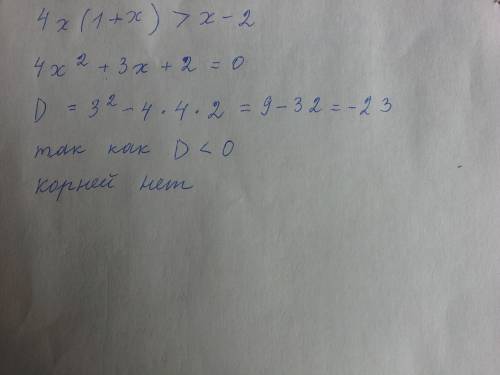 4x(1+x) > x-2
4x² + 3x + 2 = 0
D = 3² - 4 · 4 · 2 = 9 - 32 = -23
так как D < 0
корней нет